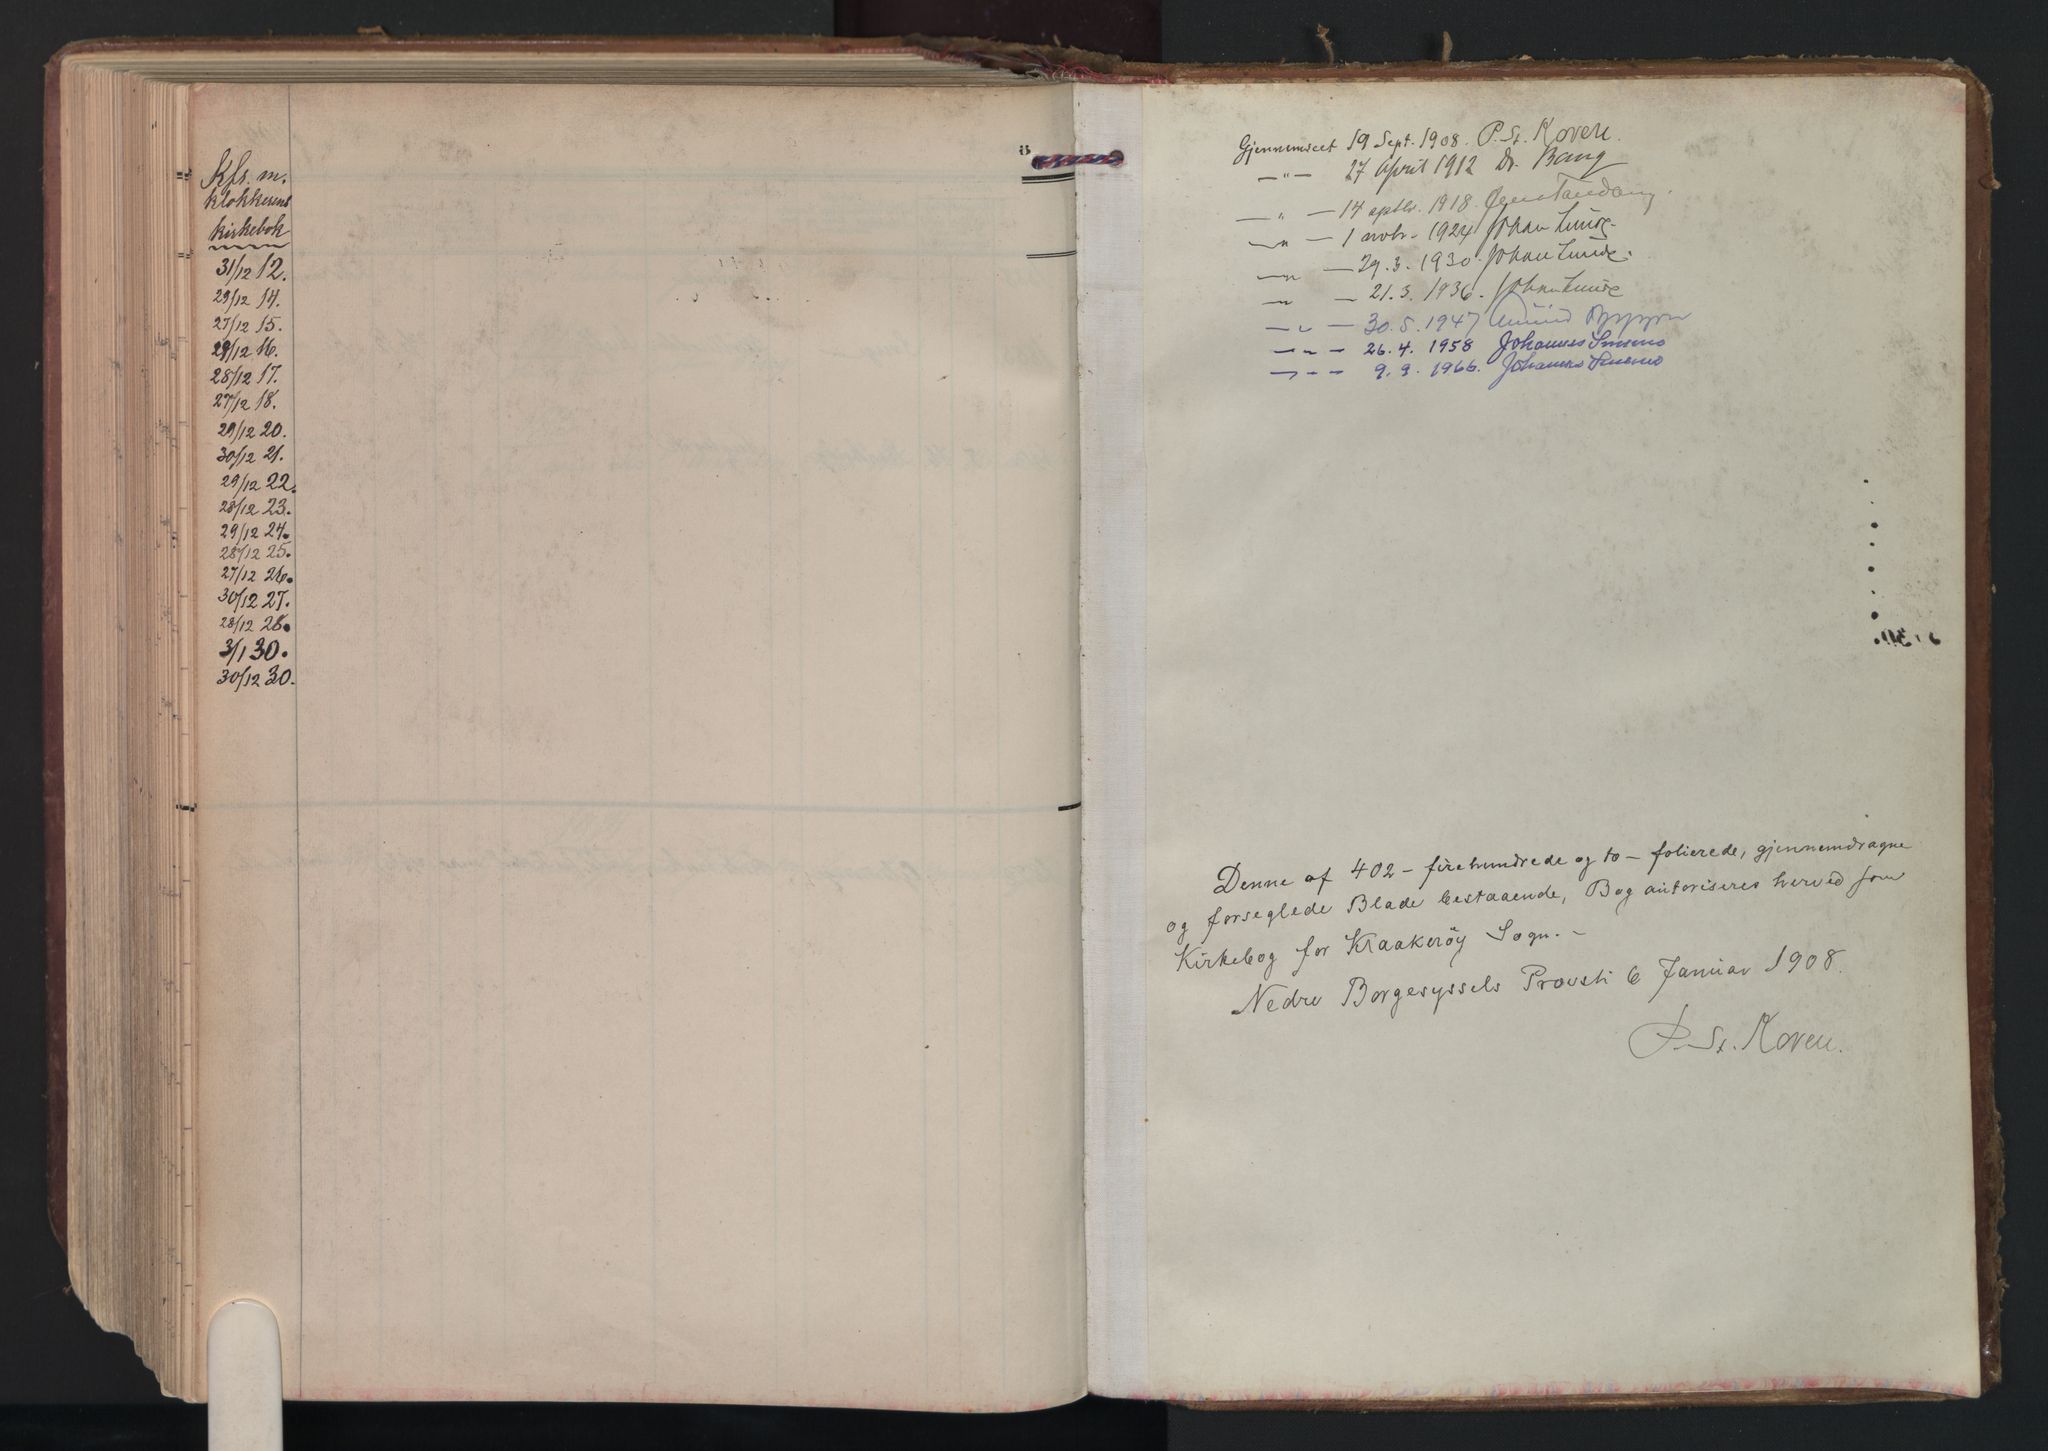 Kfr. m.
klokkerens
kirkebok
31/12 12.
29/12 14.
27/12 15.
29/12 16.
28/12 17.
27/12 18.
29/12 20.
30/12 21.
29/12 22.
28/12 23.
29/12 24.
28/12 25.
27/12 26.
30/12 27.
28/12 28.
3/1 30.
30/12 30.
Gjennemseet 19 Sept. 1908. P. St. Koren.
—"— 27 April 1912 Dr. Bang
—"— 14 septbr. 1918. Jens Tandberg.
—"— 1 novbr. 1924 Johan Lunde.
—"— 29.3. 1930. Johan Lunde.
—"— 21.3. 1936. Johan Lunde
—"— 30.5.1947
—"— 26.4. 1958 Johannes Smemo
—"— 9.9. 1966. Johannes Smemo
Denne af 402 – firehundrede og to – folierede, gjennemdragne
og forseglede Blade bestaaende, Bog autoriseres herved som
Kirkebog for Kraakerøy Sogn. –
Nedre Borgesyssels Provsti 6 Januar 1908.
P. St. Koren.